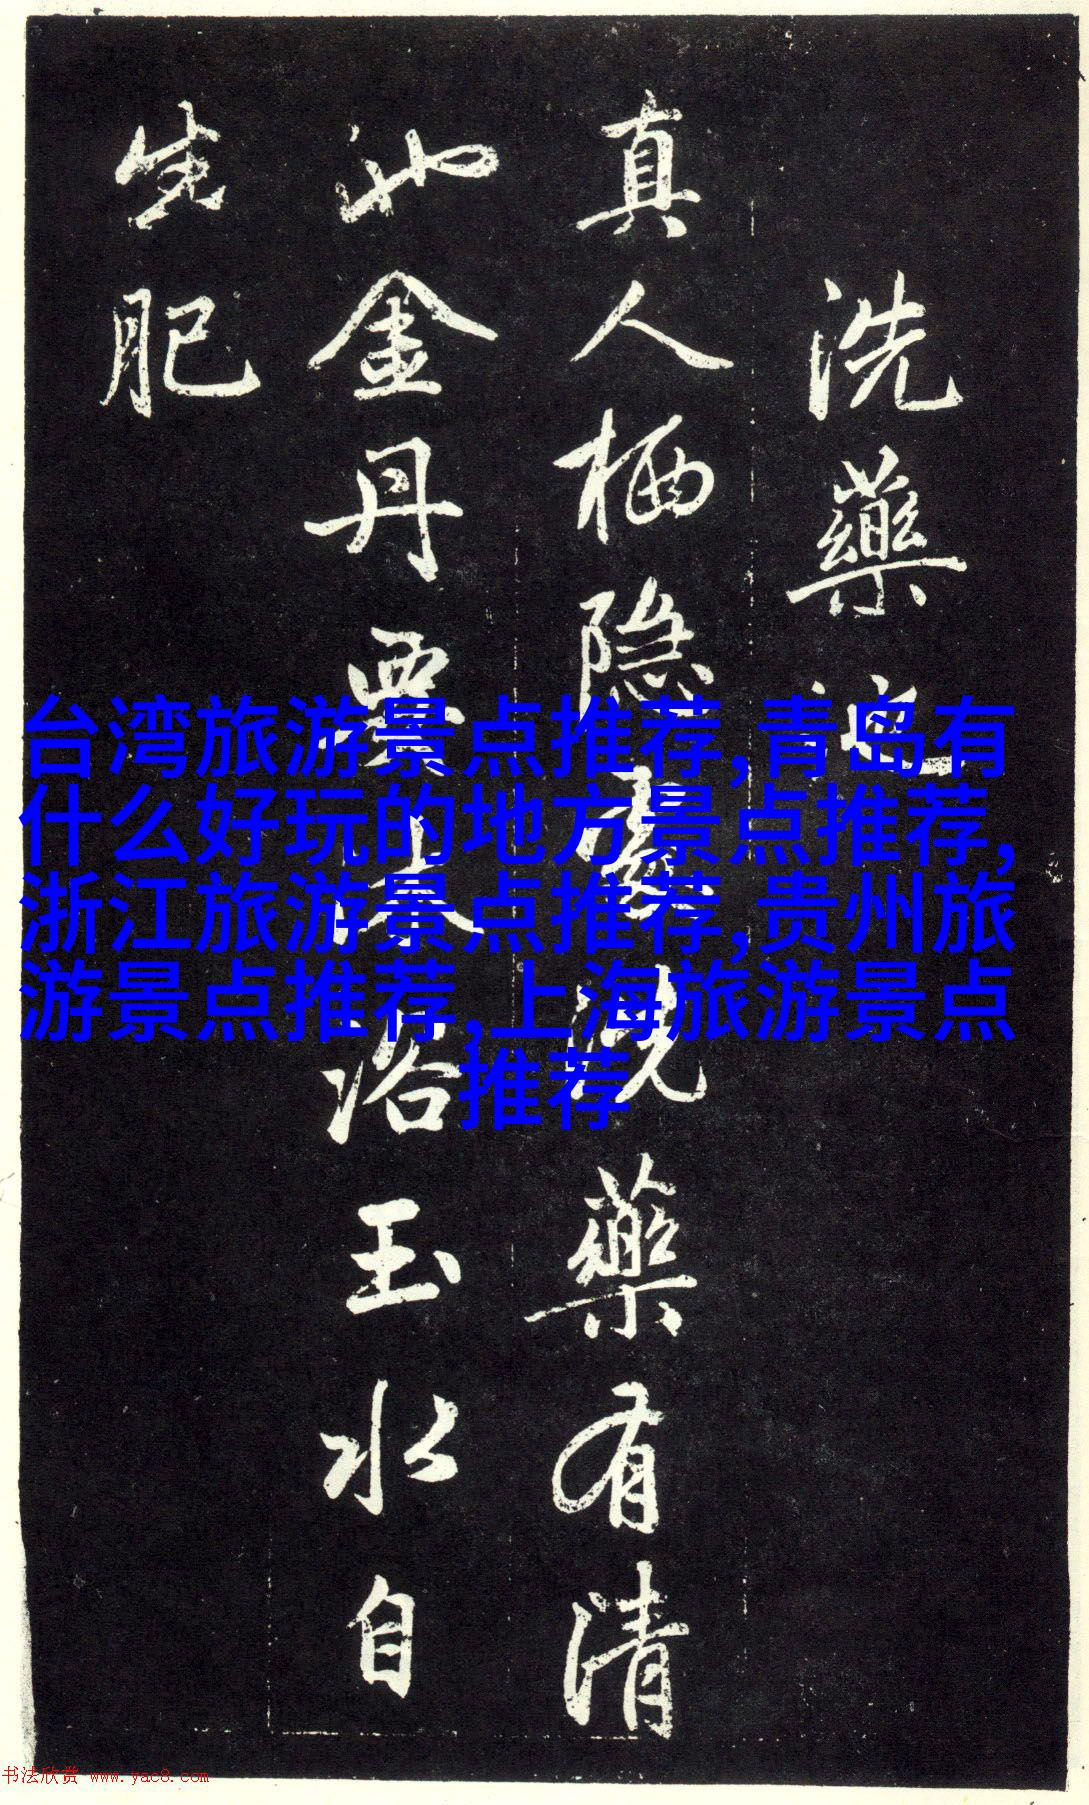 洗藥池
真人栖隐處洗藥有清
池金丹要沐浴玉水自
生肥
台湾旅游景点推荐,青岛有
什么好玩的地方景点推荐,
浙江旅游景点推荐,贵州旅
游景点推荐,上海旅游景点
推荐
书法欣赏 www.yac8.com